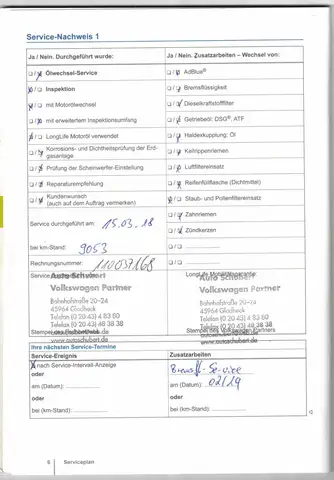 Service-Nachweis 1
Ja / Nein. Durchgeführt wurde:
Ja / Nein. Zusatzarbeiten – Wechsel von:
Ölwechsel-Service
AdBlue®
Inspektion
Bremsflüssigkeit
mit Motorölwechsel
Dieselkraftstofffilter
mit erweitertem Inspektionsumfang
Getriebeöl: DSG®, ATF
LongLife Motoröl verwendet
Haldexkupplung: Öl
Korrosions- und Dichtheitsprüfung der Erdgasanlage
Keilrippenriemen
Prüfung der Scheinwerfer-Einstellung
Luftfiltereinsatz
Reparaturempfehlung
Reifenfüllflasche (Dichtmittel)
Kundenwunsch
(auch auf dem Auftrag vermerken)
Staub- und Pollenfiltereinsatz
Zahnriemen
Service durchgeführt am: 15.03.18
Zündkerzen
bei km-Stand: 9053
Rechnungsnummer: 110037168
LongLife Mobilitätsgarantie:
Auto Schubert
Volkswagen Partner
Bahnhofstraße 20–24
45964 Gladbeck
Telefon (0 20 43) 4 83 80
Telefax (0 20 43) 48 38 38
www.autoschubert.de
Auto Schubert
Volkswagen Partner
Bahnhofstraße 20–24
45964 Gladbeck
Telefon (0 20 43) 4 83 80
Telefax (0 20 43) 48 38 38
www.autoschubert.de
Ihre nächsten Service-Termine
Service-Ereignis
Zusatzarbeiten
nach Service-Intervall-Anzeige
oder
am (Datum):
oder
bei (km-Stand):
Bremsfl-Service
am (Datum): 02/19
oder
bei (km-Stand):
6 Serviceplan